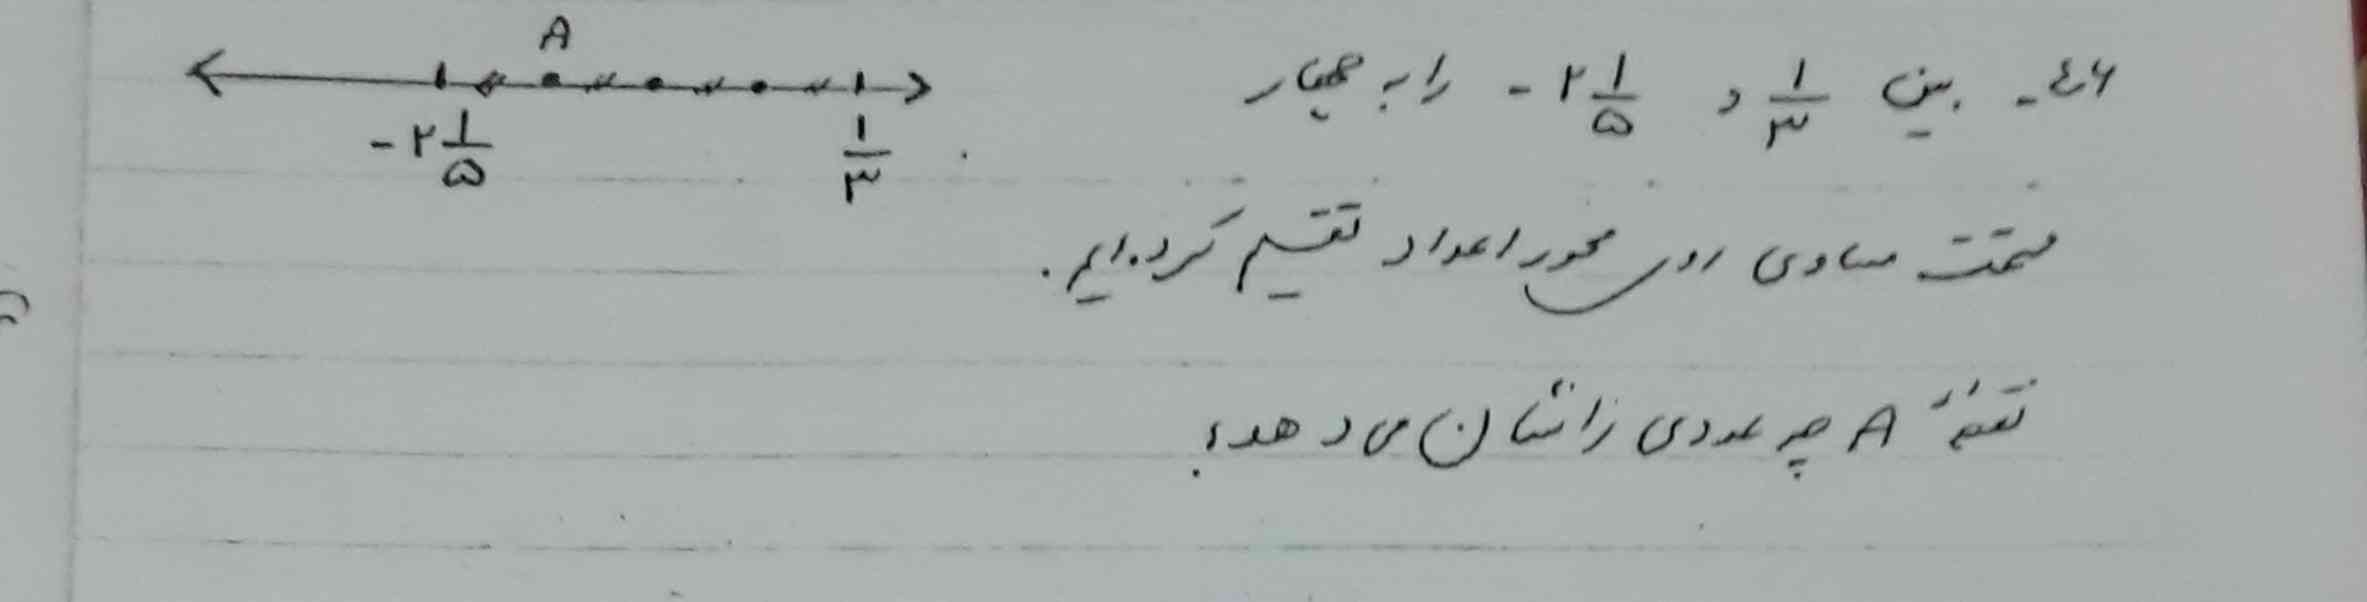 ۴۶- بین ۱/۳ و -۲ ۱/۵ را به چهار
قسمت مساوی روی محور اعداد تقسیم کرده‌ایم.
نقطهٔ A چه عددی را نشان می‌دهد؟
A
-۲ ۱/۵ ۱/۳